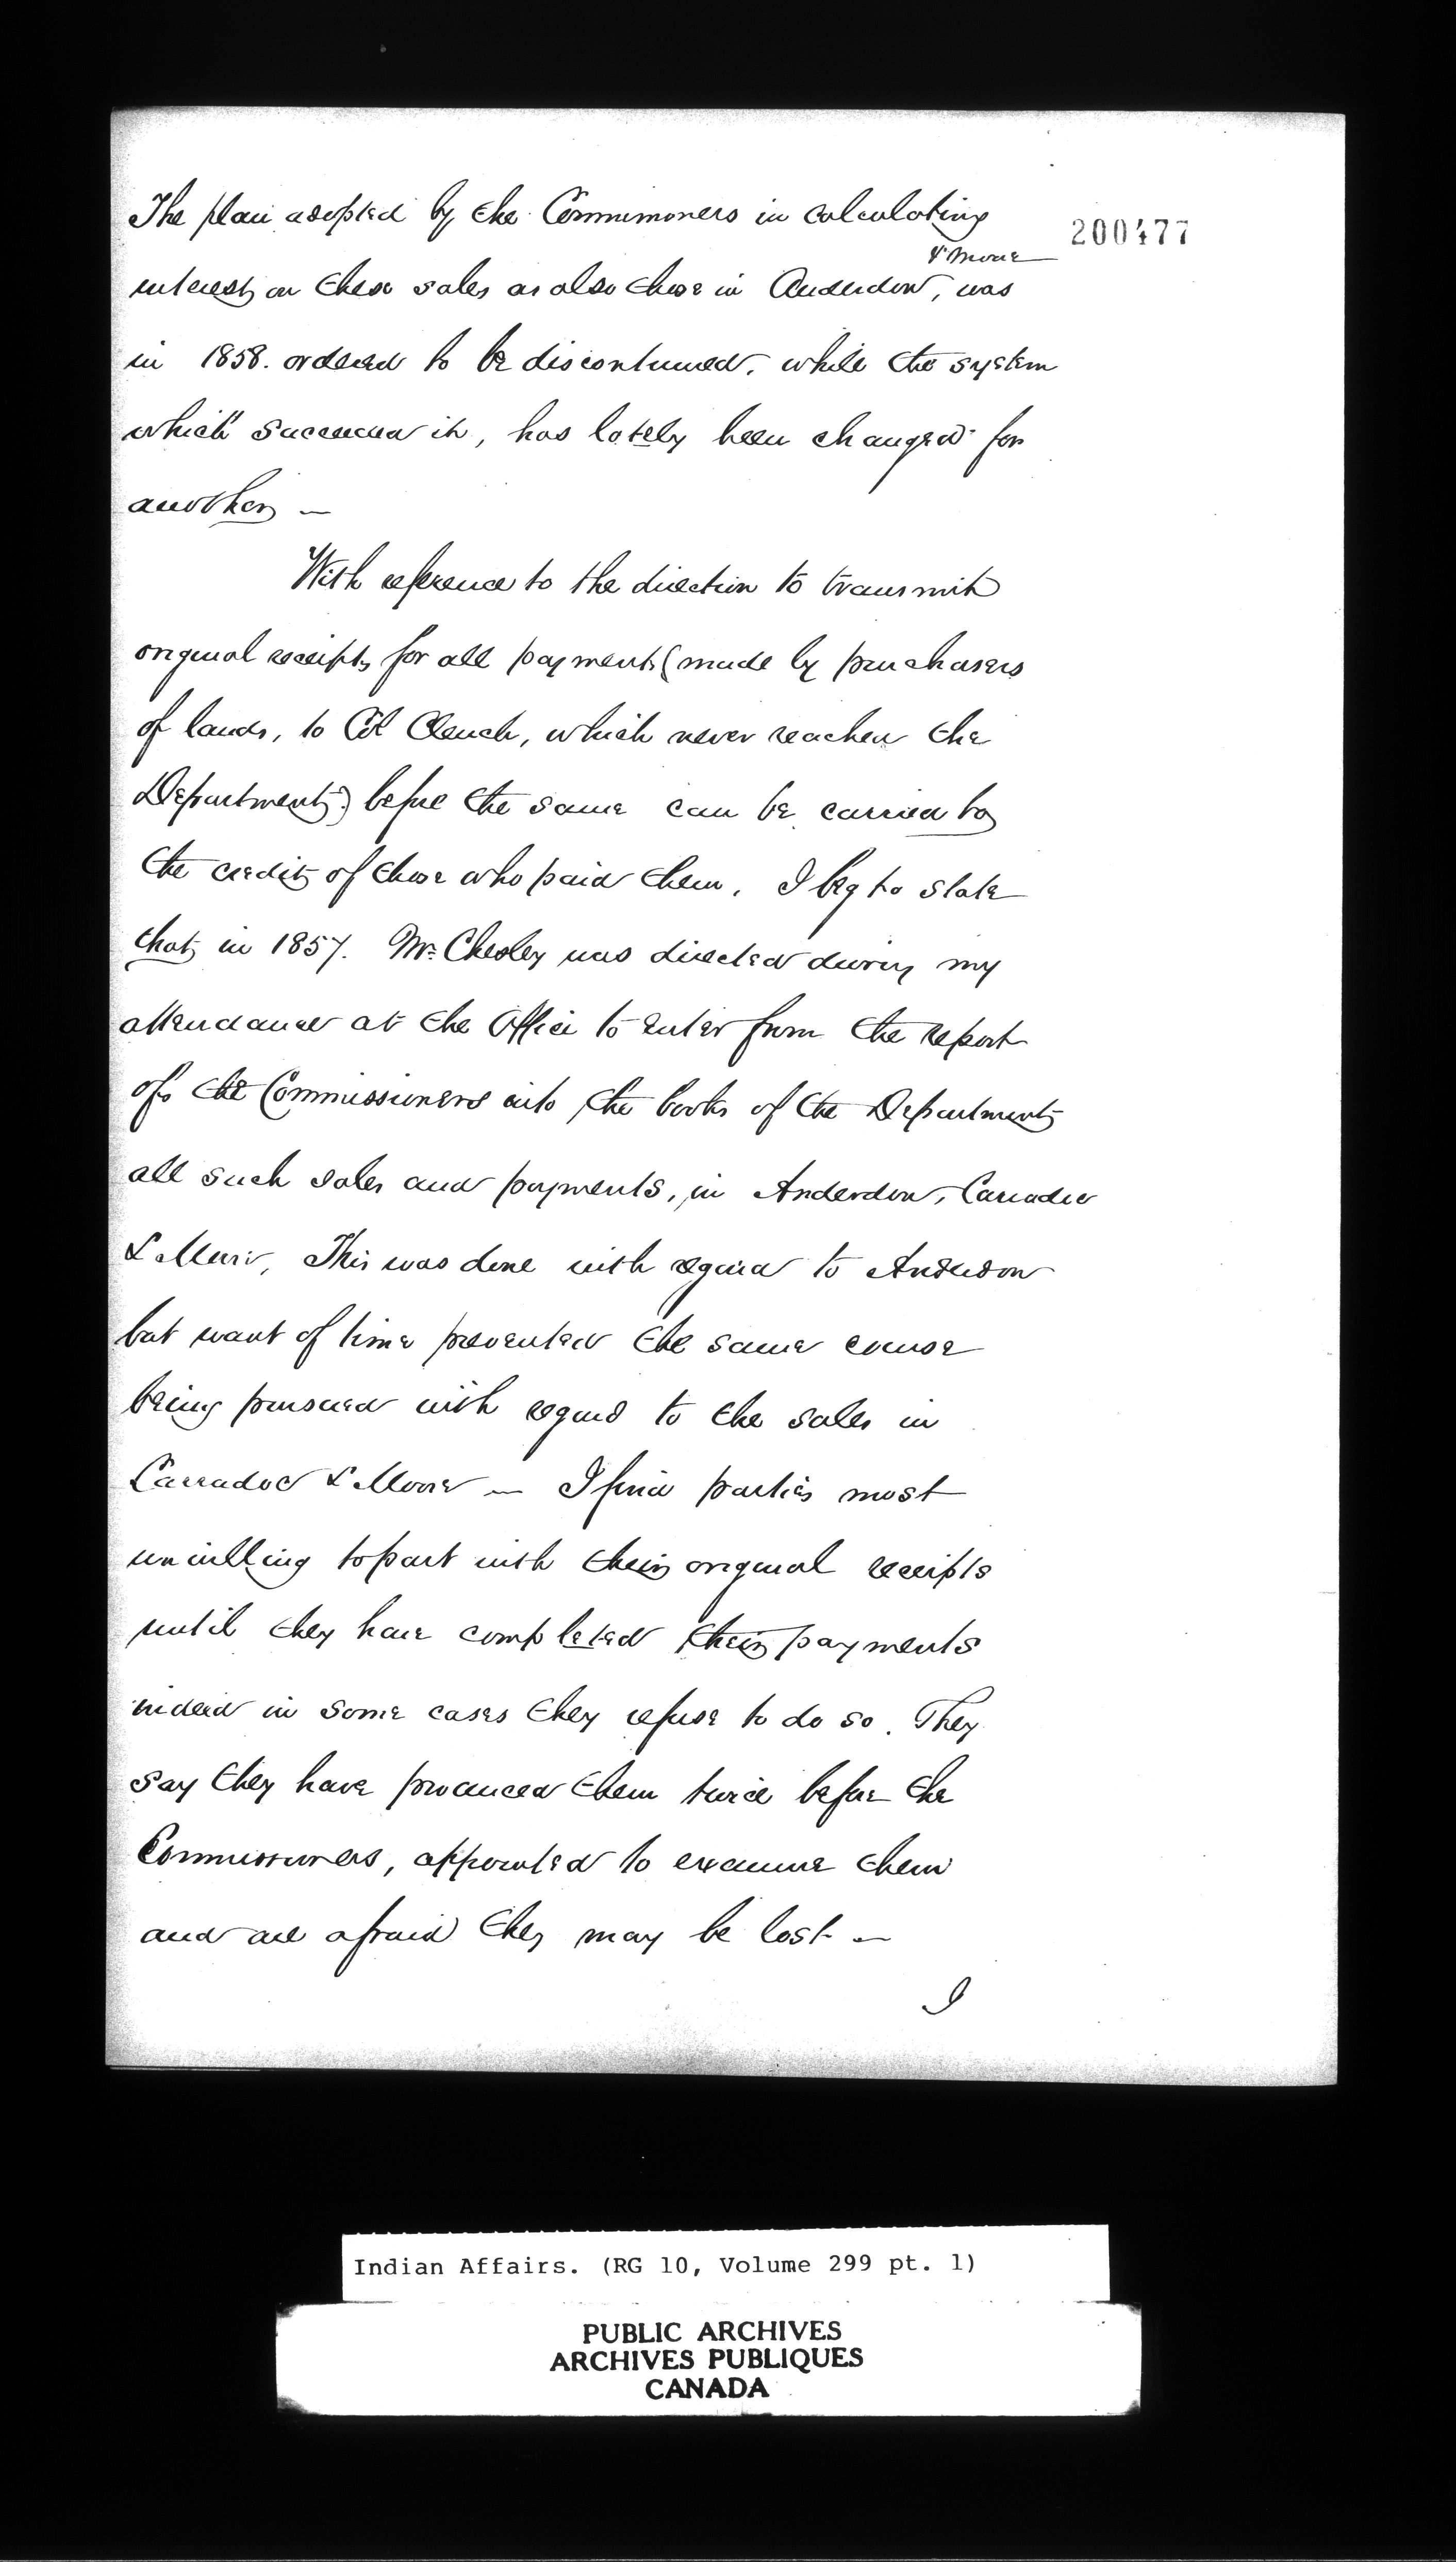 The plan adopted by the Commissioners in calculating
200477
& Moore
interest on these sales as also those in Anderdon, was
in 1858. ordered to be discontinued, while the system
which succeeded it, has lately been changed for
another —
With reference to the direction to transmit
original receipts for all payments (made by purchasers
of lands, to Col Clench, which never reached the
Department) before the same can be carried to
the credit of those who paid them, I beg to state
that in 1857. Mr. Chesley was directed during my
attendance at the Office to enter from the report
of the Commissioners into the books of the Department
all such sales and payments, in Anderdon, Caradoc
& Moore, This was done with regard to Anderdon
but want of time prevented the same course
being pursued with regard to the sales in
Carradoc & Moore — I find parties most
unwilling to part with their original receipts
until they have completed their payments
indeed in some cases they refuse to do so. They
say they have produced them twice before the
Commissioners, appointed to examine them
and are afraid they may be lost —
I
Indian Affairs. (RG 10, Volume 299 pt. 1)
PUBLIC ARCHIVES
ARCHIVES PUBLIQUES
CANADA